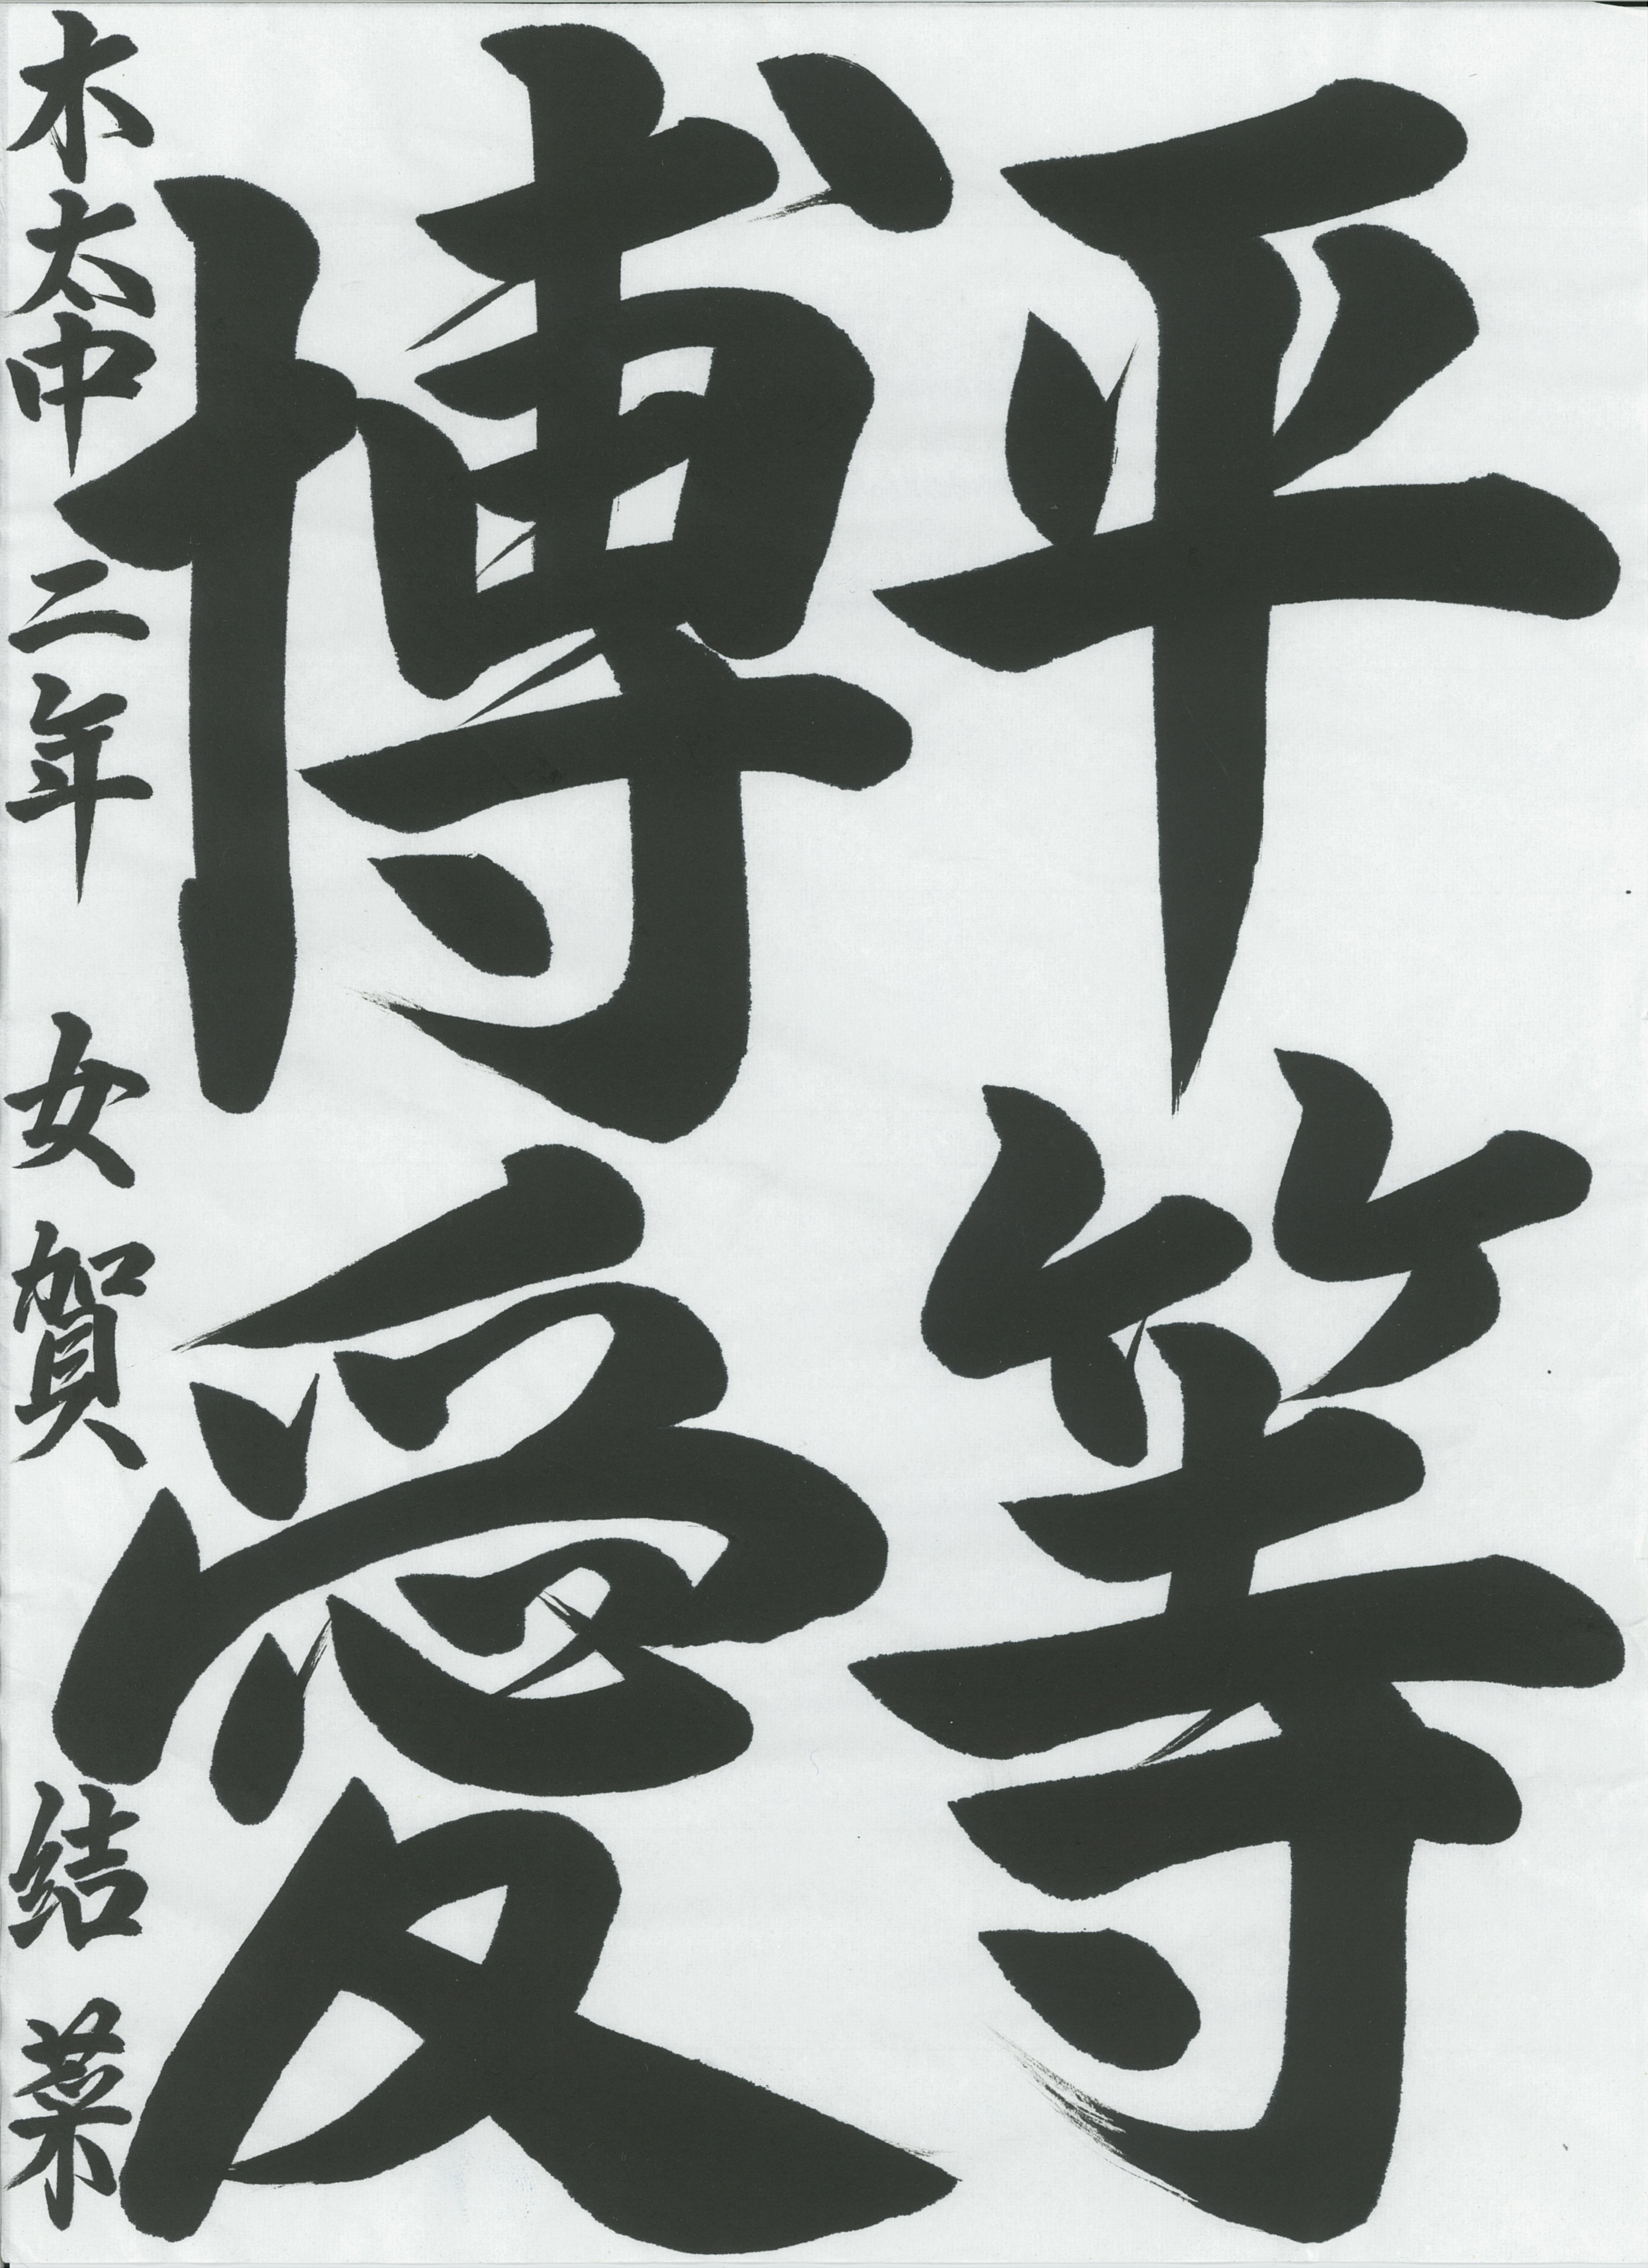 平等
博愛
木太中二年 女賀結葉